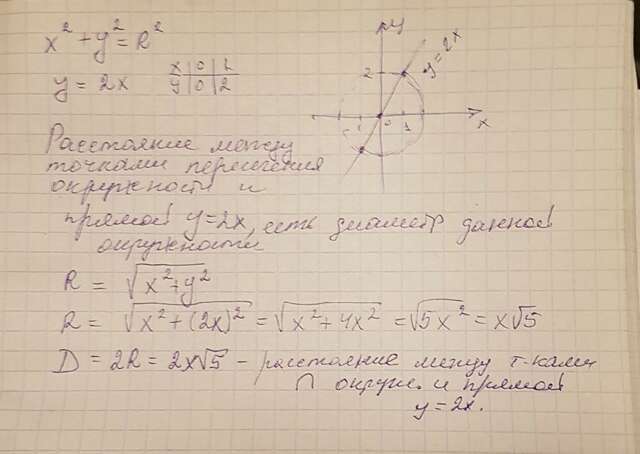 x² + y² = R²
y = 2x
x | 0 | 1
y | 0 | 2
y
2
y = 2x
0 1
x
Расстояние между
точками пересечения
окружности и
прямой y=2x, есть диаметр данной
окружности
R = √(x²+y²)
R = √(x²+(2x)²) = √(x²+4x²) = √(5x²) = x√5
D = 2R = 2x√5 – расстояние между т-ками
∩ окруж. и прямой
y = 2x.